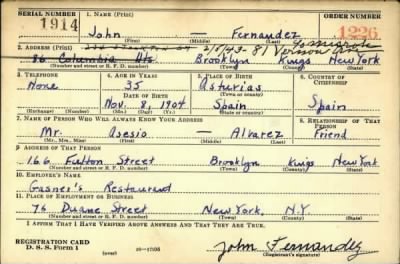 SERIAL NUMBER 1. NAME (Print) ORDER NUMBER
1914 John — Fernandez 1226
(First) (Middle) (Last)
2. ADDRESS (Print) 2/8/43-81 Vernon Ave
80 Columbia Hts Brooklyn Kings New York
(Number and street or R. F. D. number) (Town) (County) (State)
3. TELEPHONE 4. AGE IN YEARS 5. PLACE OF BIRTH 6. COUNTRY OF CITIZENSHIP
None 35 Asturias
DATE OF BIRTH (Town or county)
Nov. 8, 1904 Spain Spain
(Exchange) (Number) (Mo.) (Day) (Yr.) (State or country)
7. NAME OF PERSON WHO WILL ALWAYS KNOW YOUR ADDRESS 8. RELATIONSHIP OF THAT PERSON
Mr. Asesio — Alvarez Friend
(Mr., Mrs., Miss) (First) (Middle) (Last)
9. ADDRESS OF THAT PERSON
166 Fulton Street Brooklyn Kings New York
(Number and street or R. F. D. number) (Town) (County) (State)
10. EMPLOYER'S NAME
Gasner's Restaurant
11. PLACE OF EMPLOYMENT OR BUSINESS
76 Duane Street New York, N.Y.
(Number and street or R. F. D. number) (Town) (County) (State)
I AFFIRM THAT I HAVE VERIFIED ABOVE ANSWERS AND THAT THEY ARE TRUE.
REGISTRATION CARD
D. S. S. Form 1 (over) 16—17105 John Fernandez
(Registrant's signature)